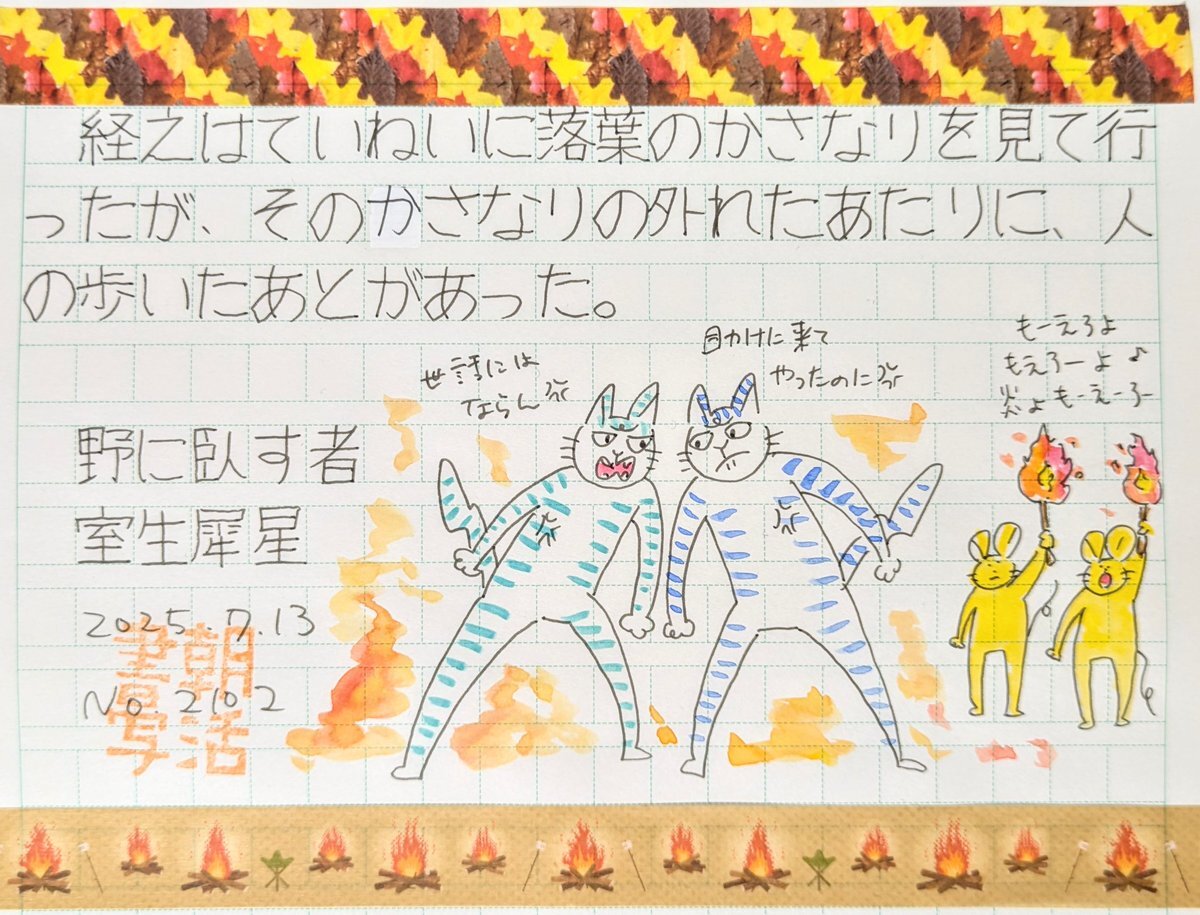 経えはていねいに落葉のかさなりを見て行
ったが、そのかさなりの外れたあたりに、人
の歩いたあとがあった。
世話には
ならん
目かけに来て
やったのに
もーえろよ
もえろーよ♪
炎よもーえーろー
野に臥す者
室生犀星
2025.7.13
No 2102
朝活
書写